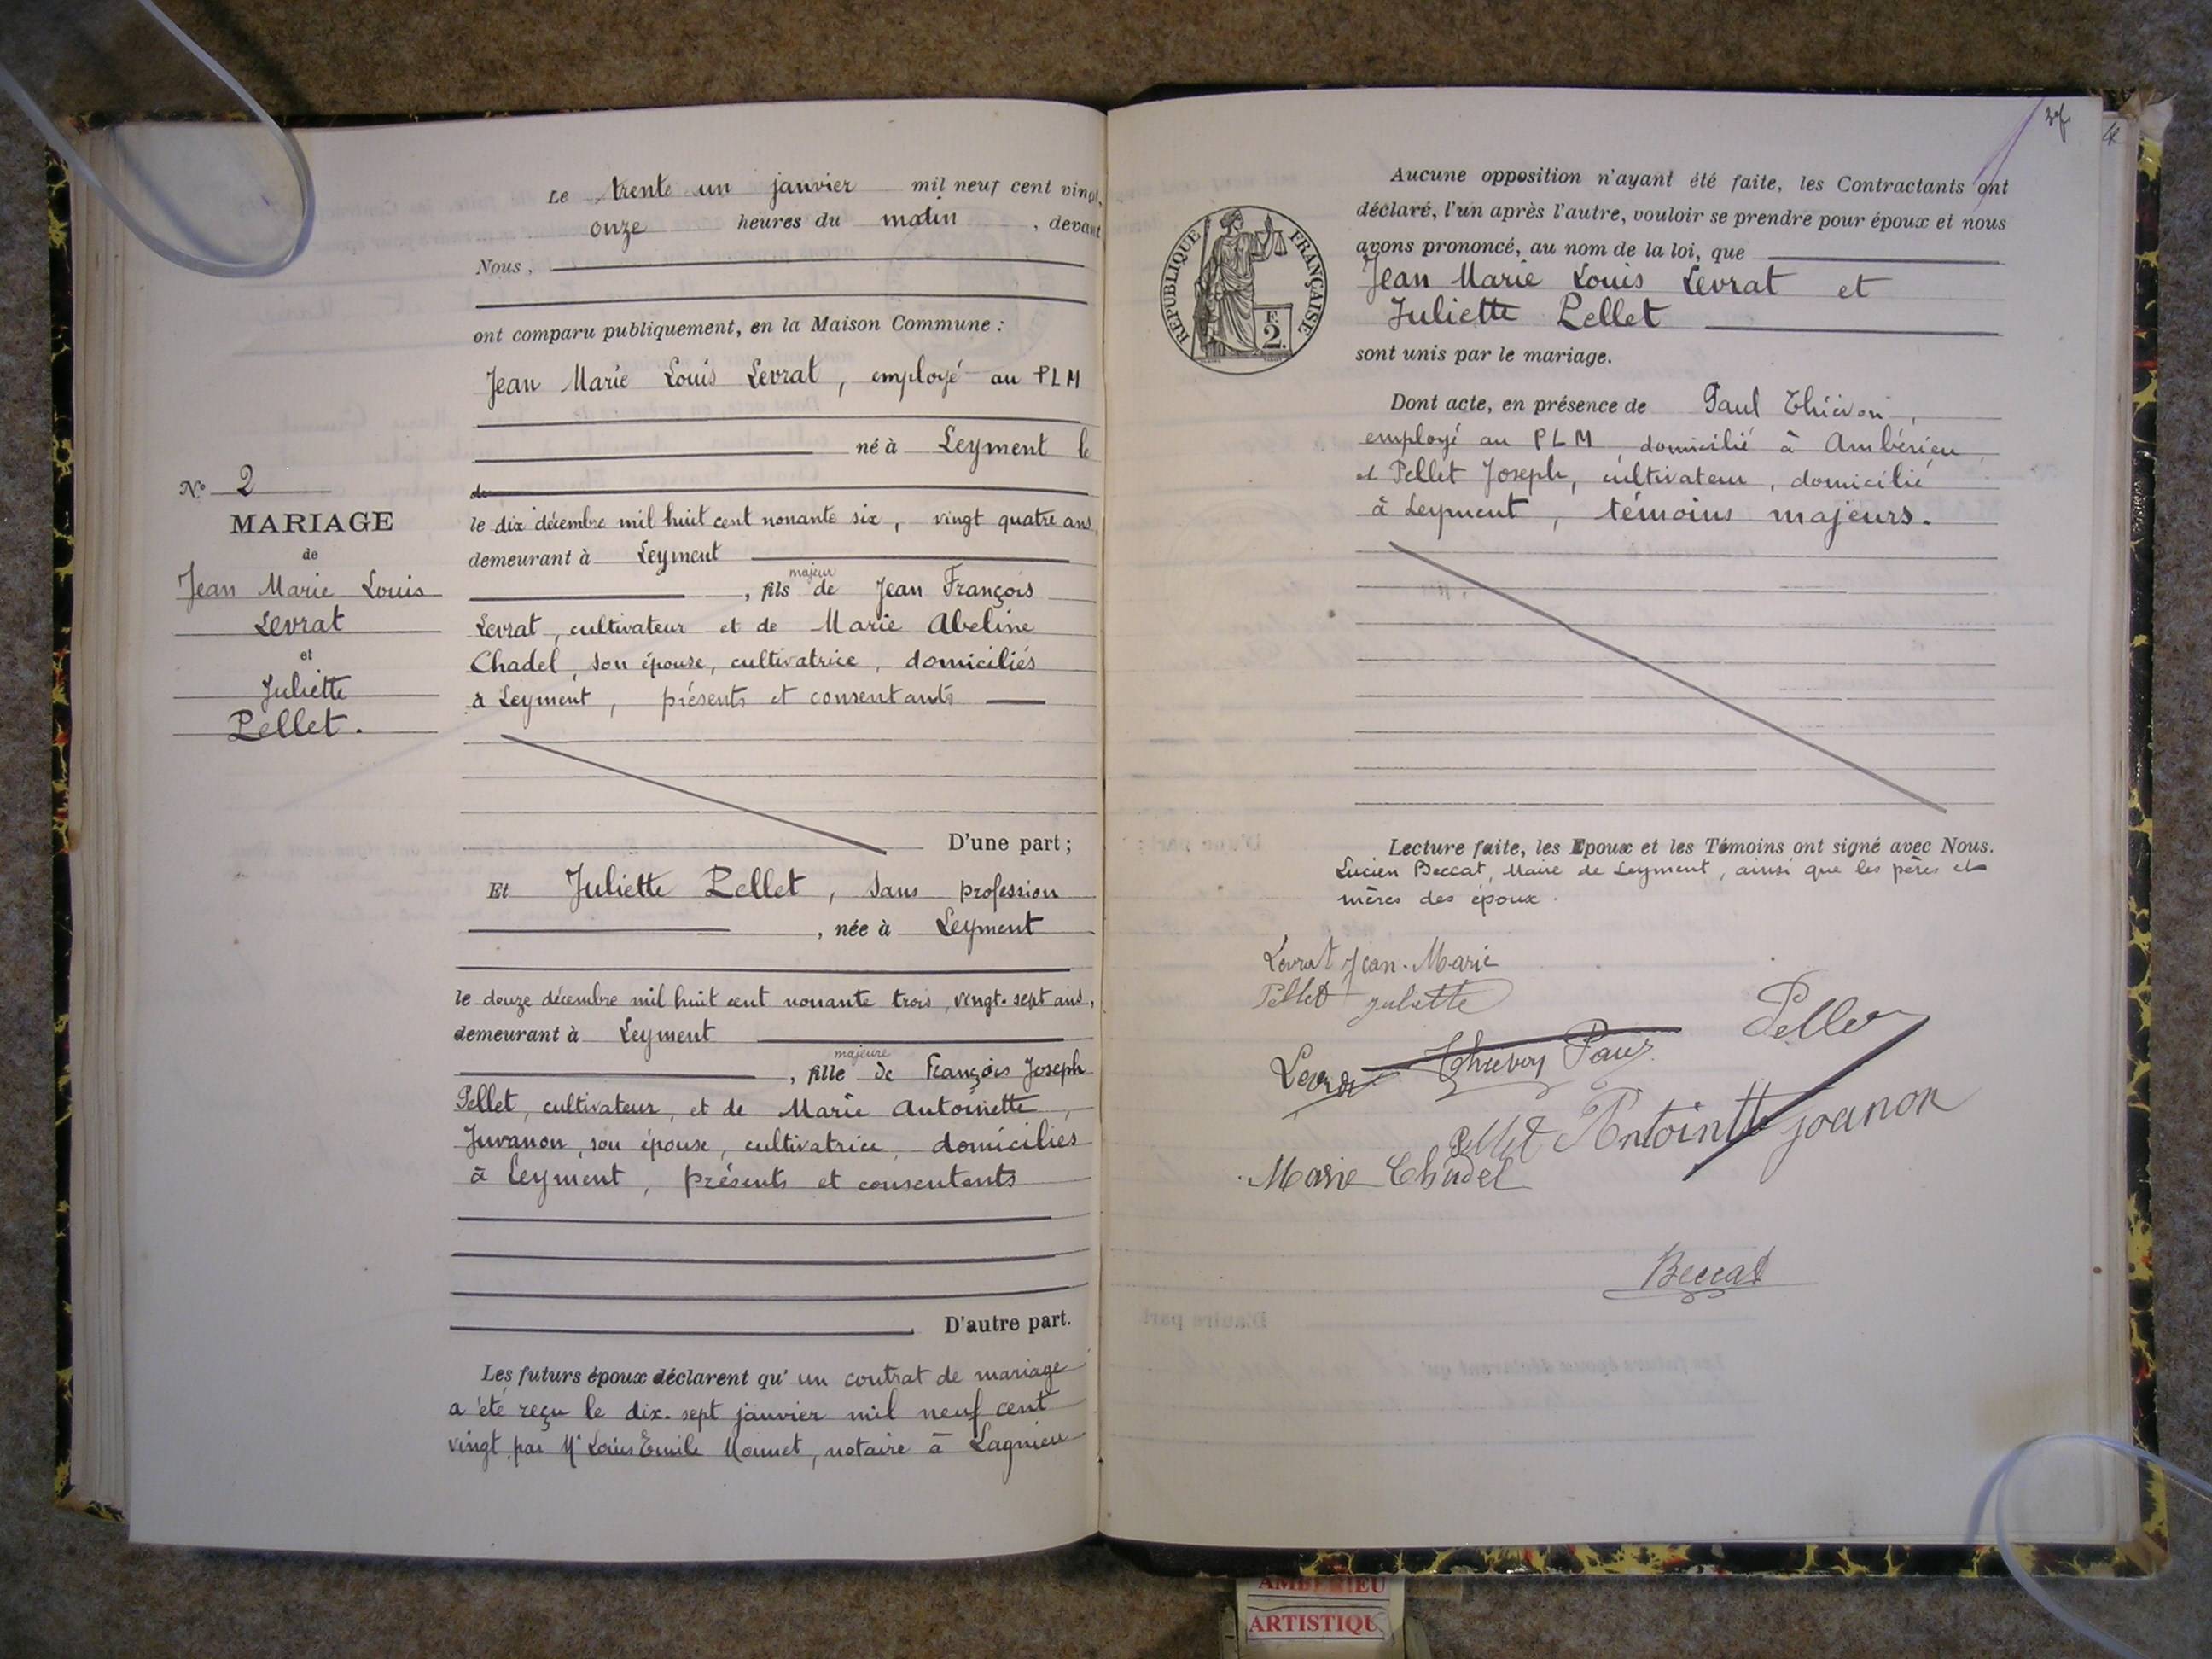 Le trente un janvier mil neuf cent vingt,
onze heures du matin, devant
Nous,
ont comparu publiquement, en la Maison Commune :
Jean Marie Louis Levrat, employé au PLM
né à Leyment le
de
le dix décembre mil huit cent nonante six, vingt quatre ans,
demeurant à Leyment
majeur
, fils de Jean François
Levrat, cultivateur et de Marie Abeline
Chadel, son épouse, cultivatrice, domiciliés
à Leyment, présents et consentants
D'une part;
N° 2
MARIAGE
de
Jean Marie Louis
Levrat
et
Juliette
Pellet.
Et Juliette Pellet, sans profession
, née à Leyment
le douze décembre mil huit cent nonante trois, vingt-sept ans,
demeurant à Leyment
majeure
, fille de François Joseph
Pellet, cultivateur, et de Marie Antoinette,
Juvanon, son épouse, cultivatrice, domiciliés
à Leyment, présents et consentants
D'autre part.
Les futurs époux déclarent qu'un contrat de mariage
a été reçu le dix-sept janvier mil neuf cent
vingt par Me Louis Emile Monnet, notaire à Lagnieu
Aucune opposition n'ayant été faite, les Contractants ont
déclaré, l'un après l'autre, vouloir se prendre pour époux et nous
avons prononcé, au nom de la loi, que
Jean Marie Louis Levrat et
Juliette Pellet
sont unis par le mariage.
REPUBLIQUE FRANÇAISE
F.
2.
Dont acte, en présence de Paul Thiévon,
employé au PLM, domicilié à Ambérieu,
et Pellet Joseph, cultivateur, domicilié
à Leyment, témoins majeurs.
Lecture faite, les Epoux et les Témoins ont signé avec Nous.
Lucien Beccat, Maire de Leyment, ainsi que les pères et
mères des époux.
Levrat Jean-Marie
Pellet Juliette
Levrat Thievon Paul Pellet
Pellet Antointte joanon
Marie Chadel
Beccat
AMBERIEU
ARTISTIQU